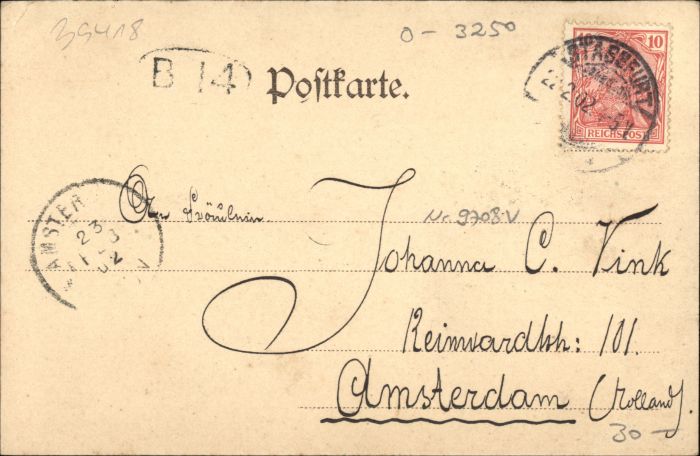 39418
0 - 3250
B 14
Postkarte.
10
STASSFURT
REICHSPOST
AMSTER
23
02
An Fräulein
Nr. 9708 V
Johanna C. Vink
Reinwardtstr: 101.
Amsterdam (Holland).
30 -